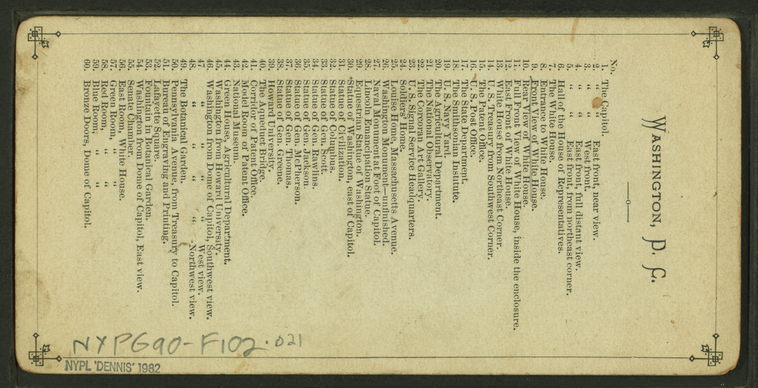 WASHINGTON, D. C.
No.
1. The Capitol.
2. " " East front, near view.
3. " " West front.
4. " " East front, full distant view.
5. " " East front, from northeast corner.
6. Hall of the House of Representatives.
7. The White House.
8. Entrance to White House.
9. Front View of White House.
10. Rear View of White House.
11. Full Front View of White House, inside the enclosure.
12. East Front of White House.
13. White House from Northeast Corner.
14. U. S. Treasury from Southwest Corner.
15. The Patent Office.
16. U. S. Post Office.
17. The State Department.
18. The Smithsonian Institute.
19. U. S. Navy Yard.
20. The Agricultural Department.
21. The National Observatory.
22. The Corcoran Art Gallery.
23. U. S. Signal Service Headquarters.
24. Soldiers' Home.
25. Louise Home, Massachusetts Avenue.
26. Washington Monument—unfinished.
27. Naval Monument at Foot of Capitol.
28. Lincoln Emancipation Statue.
29. Equestrian Statue of Washington.
30. Statue of Washington, east of Capitol.
31. Statue of Civilization.
32. Statue of Columbus.
33. Statue of Gen. Scott.
34. Statue of Gen. Rawlins.
35. Statue of Gen. Jackson.
36. Statue of Gen. McPherson.
37. Statue of Gen. Thomas.
38. Statue of Gen. Greene.
39. Howard University.
40. The Aqueduct Bridge.
41. Corridor of Patent Office.
42. Model Room of Patent Office.
43. National Museum.
44. Green House, Agricultural Department.
45. Washington from Howard University.
46. Washington from Dome of Capitol, Southwest view.
47. " " " " West view.
48. " " " " Northwest view.
49. The Botanical Garden.
50. Pennsylvania Avenue, from Treasury to Capitol.
51. Bureau of Engraving and Printing.
52. Lafayette Square.
53. Fountain in Botanical Garden.
54. Washington from Dome of Capitol, East view.
55. Senate Chamber.
56. East Room, White House.
57. Green Room, " "
58. Red Room, " "
59. Blue Room, " "
60. Bronze Doors, Dome of Capitol.
NYPG90-F102.021
NYPL 'DENNIS' 1982